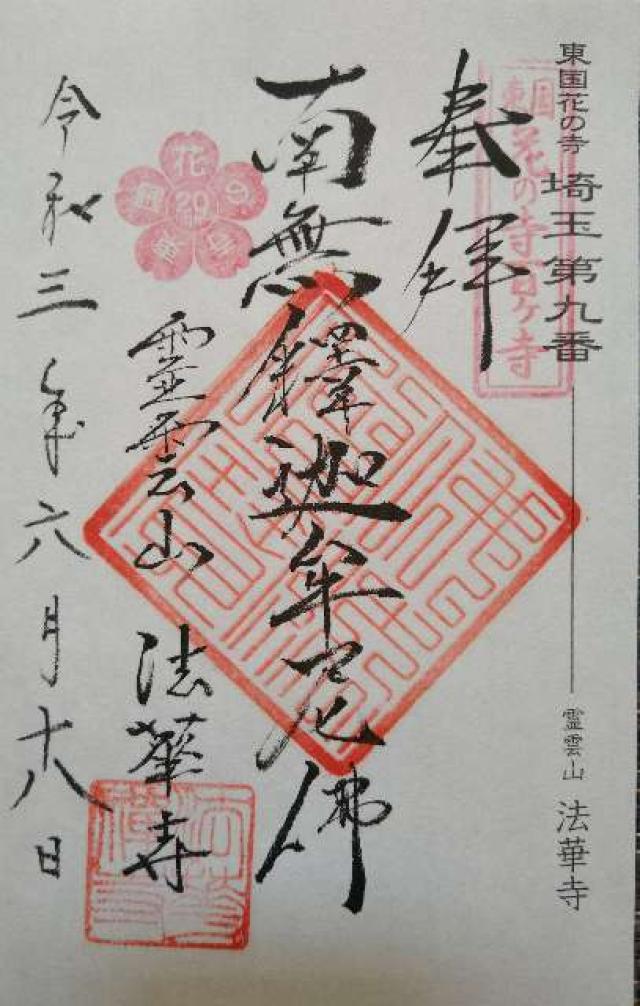 東国花の寺 埼玉第九番
霊雲山 法華寺
東国
花の寺百ヶ寺
奉拝
南無釋迦牟尼佛
霊雲山 法華寺
令和三年六月十八日
花の寺
20